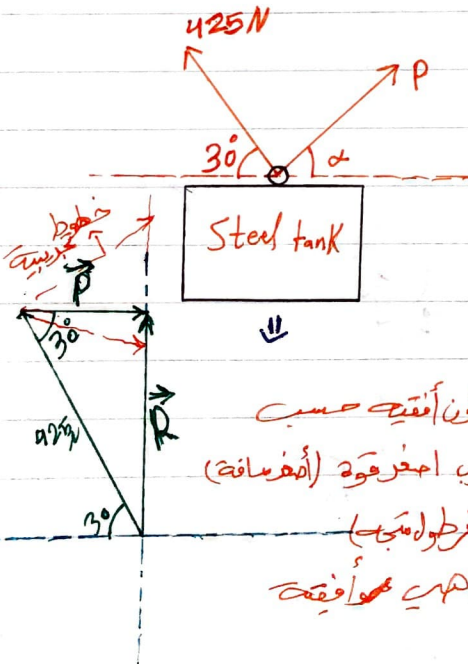 425N
P
30°
α
Steel tank
خطوط
تجريبية
P
30°
425N
R
30°
ون أفقيه حسب
ب اصغر قوة (أصغر مسافة)
ر طول متجه)
هي أفقية